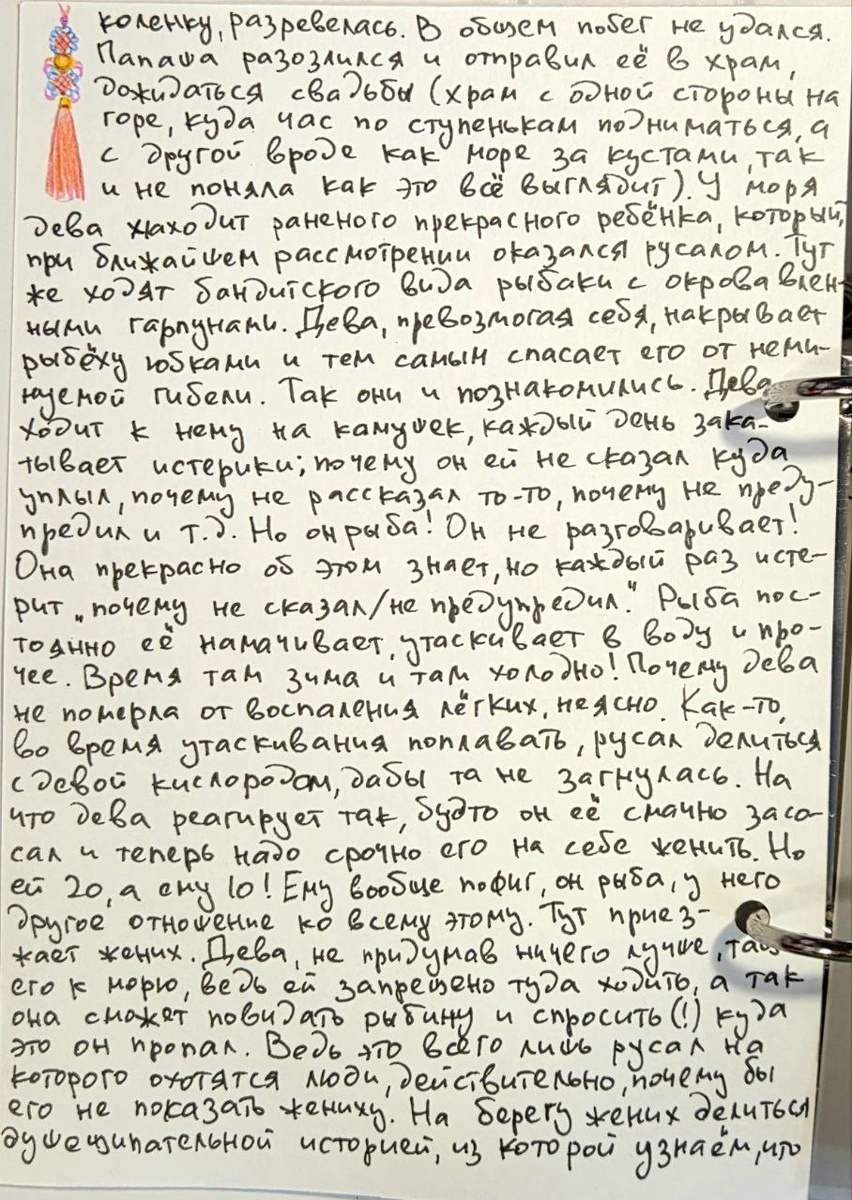 коленку, разревелась. В общем побег не удался.
Папаша разозлился и отправил её в храм,
дожидаться свадьбы (храм с одной стороны на
горе, куда час по ступенькам подниматься, а
с другой вроде как море за кустами, так
и не поняла как это всё выглядит). У моря
дева находит раненого прекрасного ребёнка, который,
при ближайшем рассмотрении оказался русалом. Тут
же ходят бандитского вида рыбаки с окровавлен-
ными гарпунами. Дева, превозмогая себя, накрывает
рыбёху юбками и тем самым спасает его от неми-
нуемой гибели. Так они и познакомились. Дева
ходит к нему на камушек, каждый день зака-
тывает истерики; почему он ей не сказал куда
уплыл, почему не рассказал то-то, почему не преду-
предил и т.д. Но он рыба! Он не разговаривает!
Она прекрасно об этом знает, но каждый раз исте-
рит „почему не сказал/не предупредил". Рыба пос-
тоянно её намачивает, утаскивает в воду и про-
чее. Время там зима и там холодно! Почему дева
не померла от воспаления лёгких, неясно. Как-то,
во время утаскивания поплавать, русал делиться
с девой кислородом, дабы та не загнулась. На
что дева реагирует так, будто он её смачно засо-
сал и теперь надо срочно его на себе женить. Но
ей 20, а ему 10! Ему вообще пофиг, он рыба, у него
другое отношение ко всему этому. Тут приез-
жает жених. Дева, не придумав ничего лучше,
его к морю, ведь ей запрещено туда ходить, а так
она сможет повидать рыбину и спросить (!) куда
это он пропал. Ведь это всего лишь русал на
которого охотятся люди, действительно, почему бы
его не показать жениху. На берегу жених делиться
душещипательной историей, из которой узнаём, что